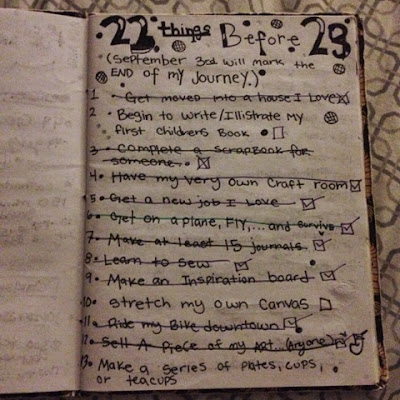 22 things Before 23
(September 3rd will mark the
END of my Journey.)
1 • Get moved into a house I Love
2 • Begin to write/Illistrate My
first childrens Book •
3 • Complete a Scrapbook for
someone •
4 • Have my very own Craft room
5 • Get a new job I Love
6 • Get on a plane, FLY,... and survive
7 • Make at least 15 journals.
8 • Learn to sew
9 • Make an Inspiration board
10 • stretch my own Canvas
11 • Ride my Bike downtown
12 • Sell A Piece of my Art... (Anyone)
13 • Make a series of plates, cups,
or teacups